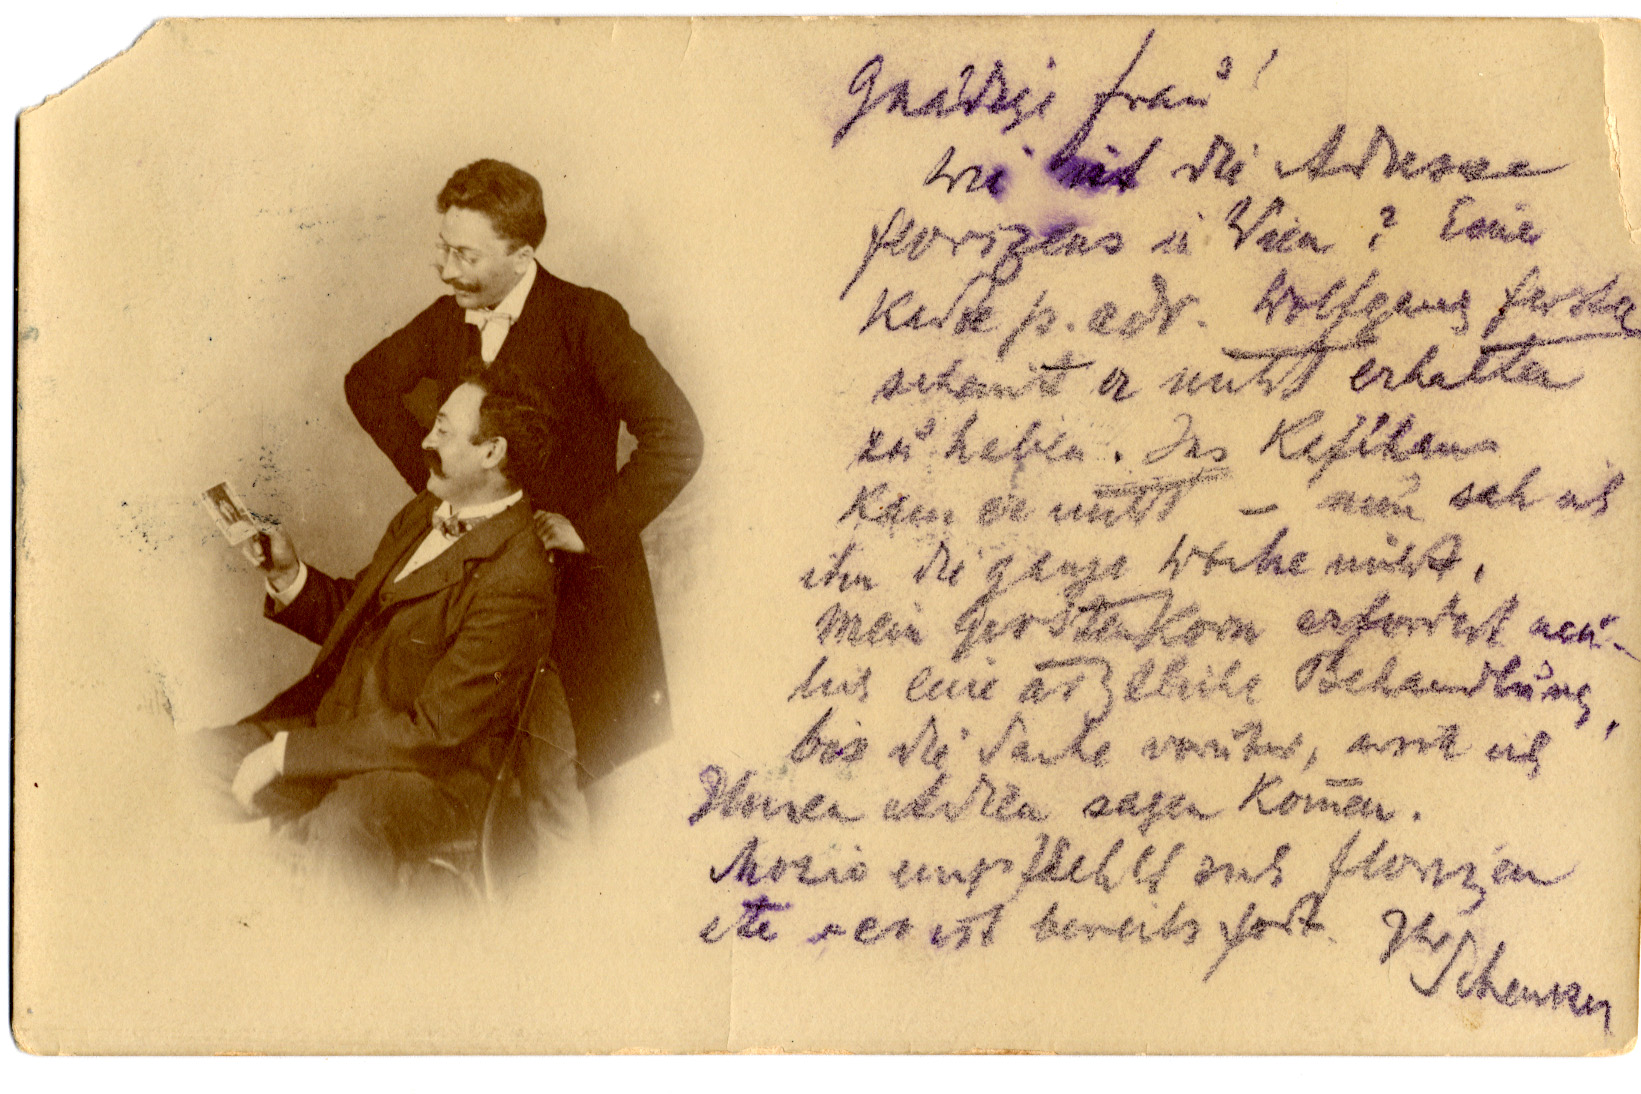 Gnädige Frau!
Wie ist die Adresse
Florizens in Wien? Eine
Karte p. adr. Wolfgang
scheint er nicht erhalten
zu haben. Ins Kaféhaus
kam er nicht – nun sah ich
ihn die ganze Woche nicht.
Mein Gerstenkorn erfordert neu-
lich eine ärztliche Behandlung,
bis die Sache vorüber, werde ich
Ihnen Adieu sagen kommen.
Mozio empfiehlt sich Florizen
etc – er ist bereits fort. Ihr
Schenker